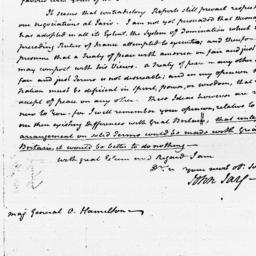 It seems that contradictory Reports still prevail respect
our negociations at Paris. I am not yet persuaded that
has adopted in all its Extent, the System of Domination which
preceding Rulers of France attempted to execute; and therefore
presume that a Treaty of peace with america on fair and just
may comport with his Views. a Treaty of peace on any other
fair and just Terms is not desireable; and in my opinion
Nation must be deficient in Spirit, power, or wisdom, that
accept of peace on any other. These Ideas however are
new to You. for I well remember your opinion, relative to
our then existing Differences with Great Britain, that unless
arrangement on solid Terms could be made with Great
Britain, it would be better to do nothing —
with great Esteem and Regard I am
Dr. Sir your most ob. S
John Jay
maj. General A. Hamilton